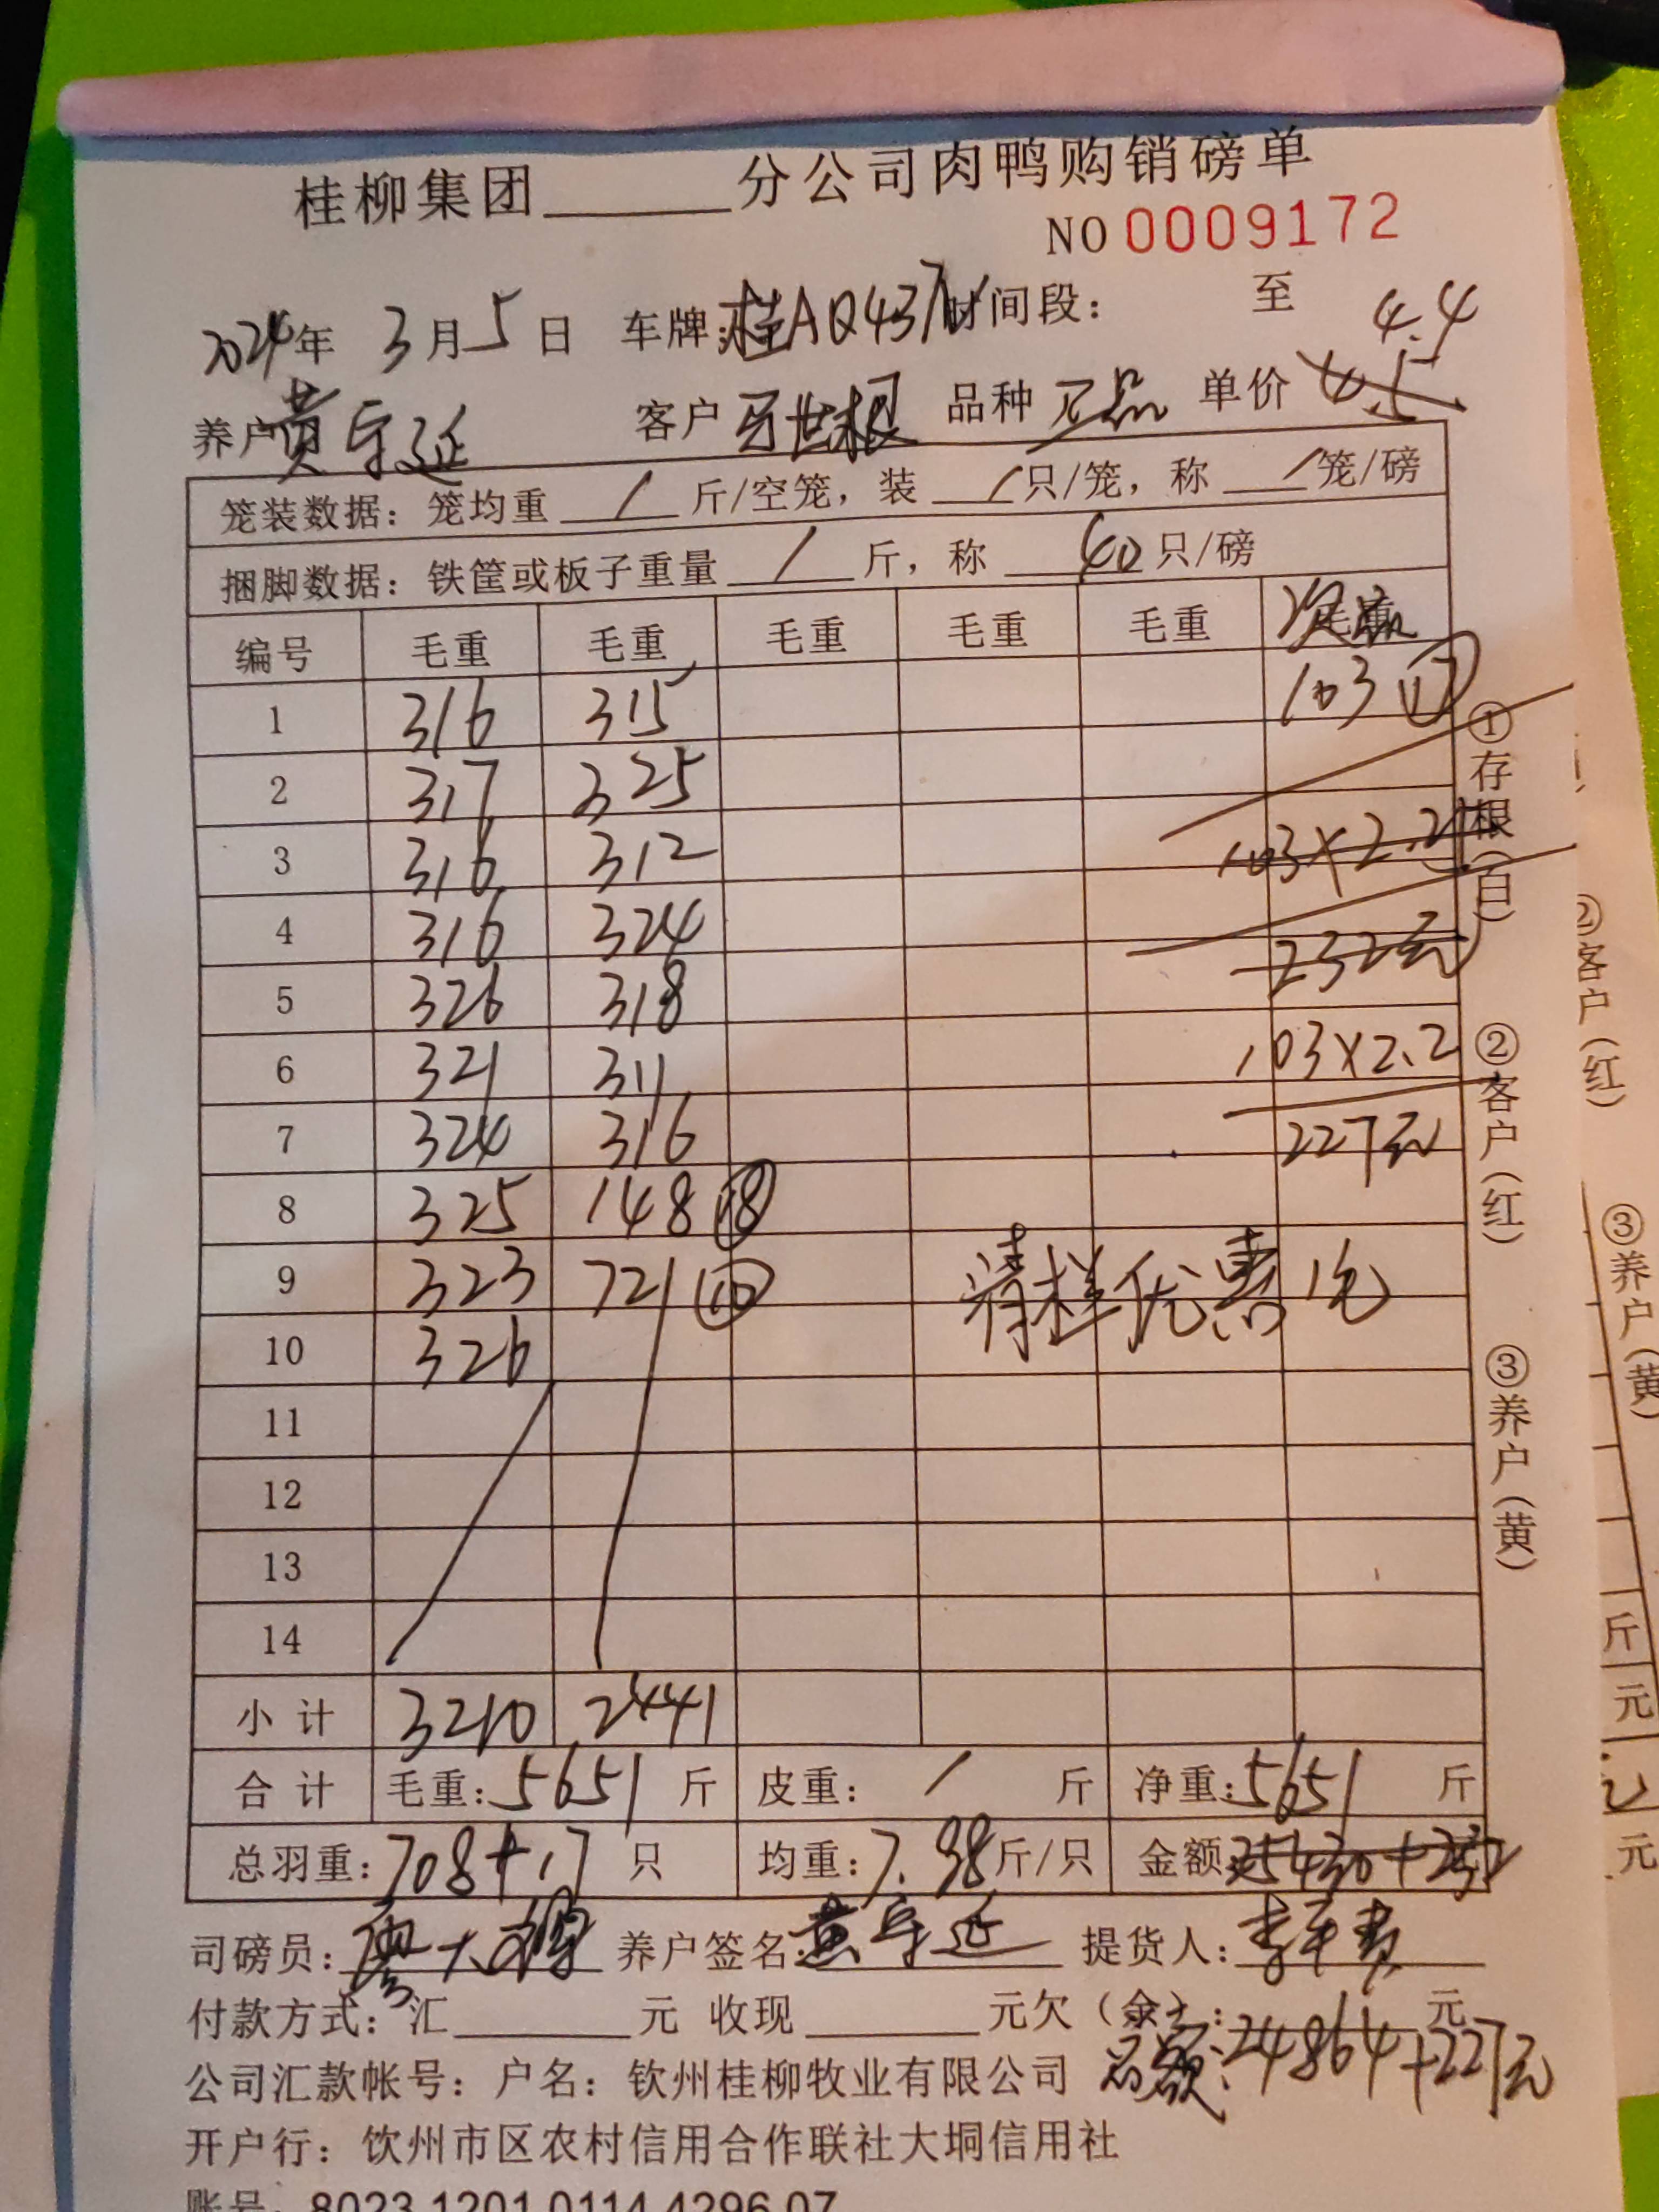 桂柳集团______分公司肉鸭购销磅单
NO 0009172
2024年 3月5日 车牌:桂AQ437 时间段: 至
4.4
养户黄宇延 客户 牙世根 品种 正品 单价 4.5
笼装数据: 笼均重 / 斤/空笼, 装 / 只/笼, 称 / 笼/磅
捆脚数据: 铁筐或板子重量 / 斤, 称 40 只/磅
编号 毛重 毛重 毛重 毛重 毛重 次品
1 316 315 103 ⑰
2 317 325
3 316 312 103×2.25
4 316 324 232元
5 326 318
6 321 311 103×2.2
7 324 316 227元
8 325 148 ⑱
9 323 721 ⑩ 清栏优惠1毛
10 326
11
12
13
14
小计 3210 2441
合计 毛重:5651 斤 皮重: / 斤 净重:5651 斤
总羽重:708+17 只 均重:7.98斤/只 金额:25430+232
司磅员: 养户签名:黄宇延 提货人:
付款方式: 汇______元 收现______元欠(余): 元
总额:24864+227元
公司汇款帐号: 户名: 钦州桂柳牧业有限公司
开户行: 饮州市区农村信用合作联社大垌信用社
账号: 8023 1201 0114 4296 07
①存根(白) ②客户(红) ③养户(黄)
②客户(红) ③养户(黄)
斤
元
元